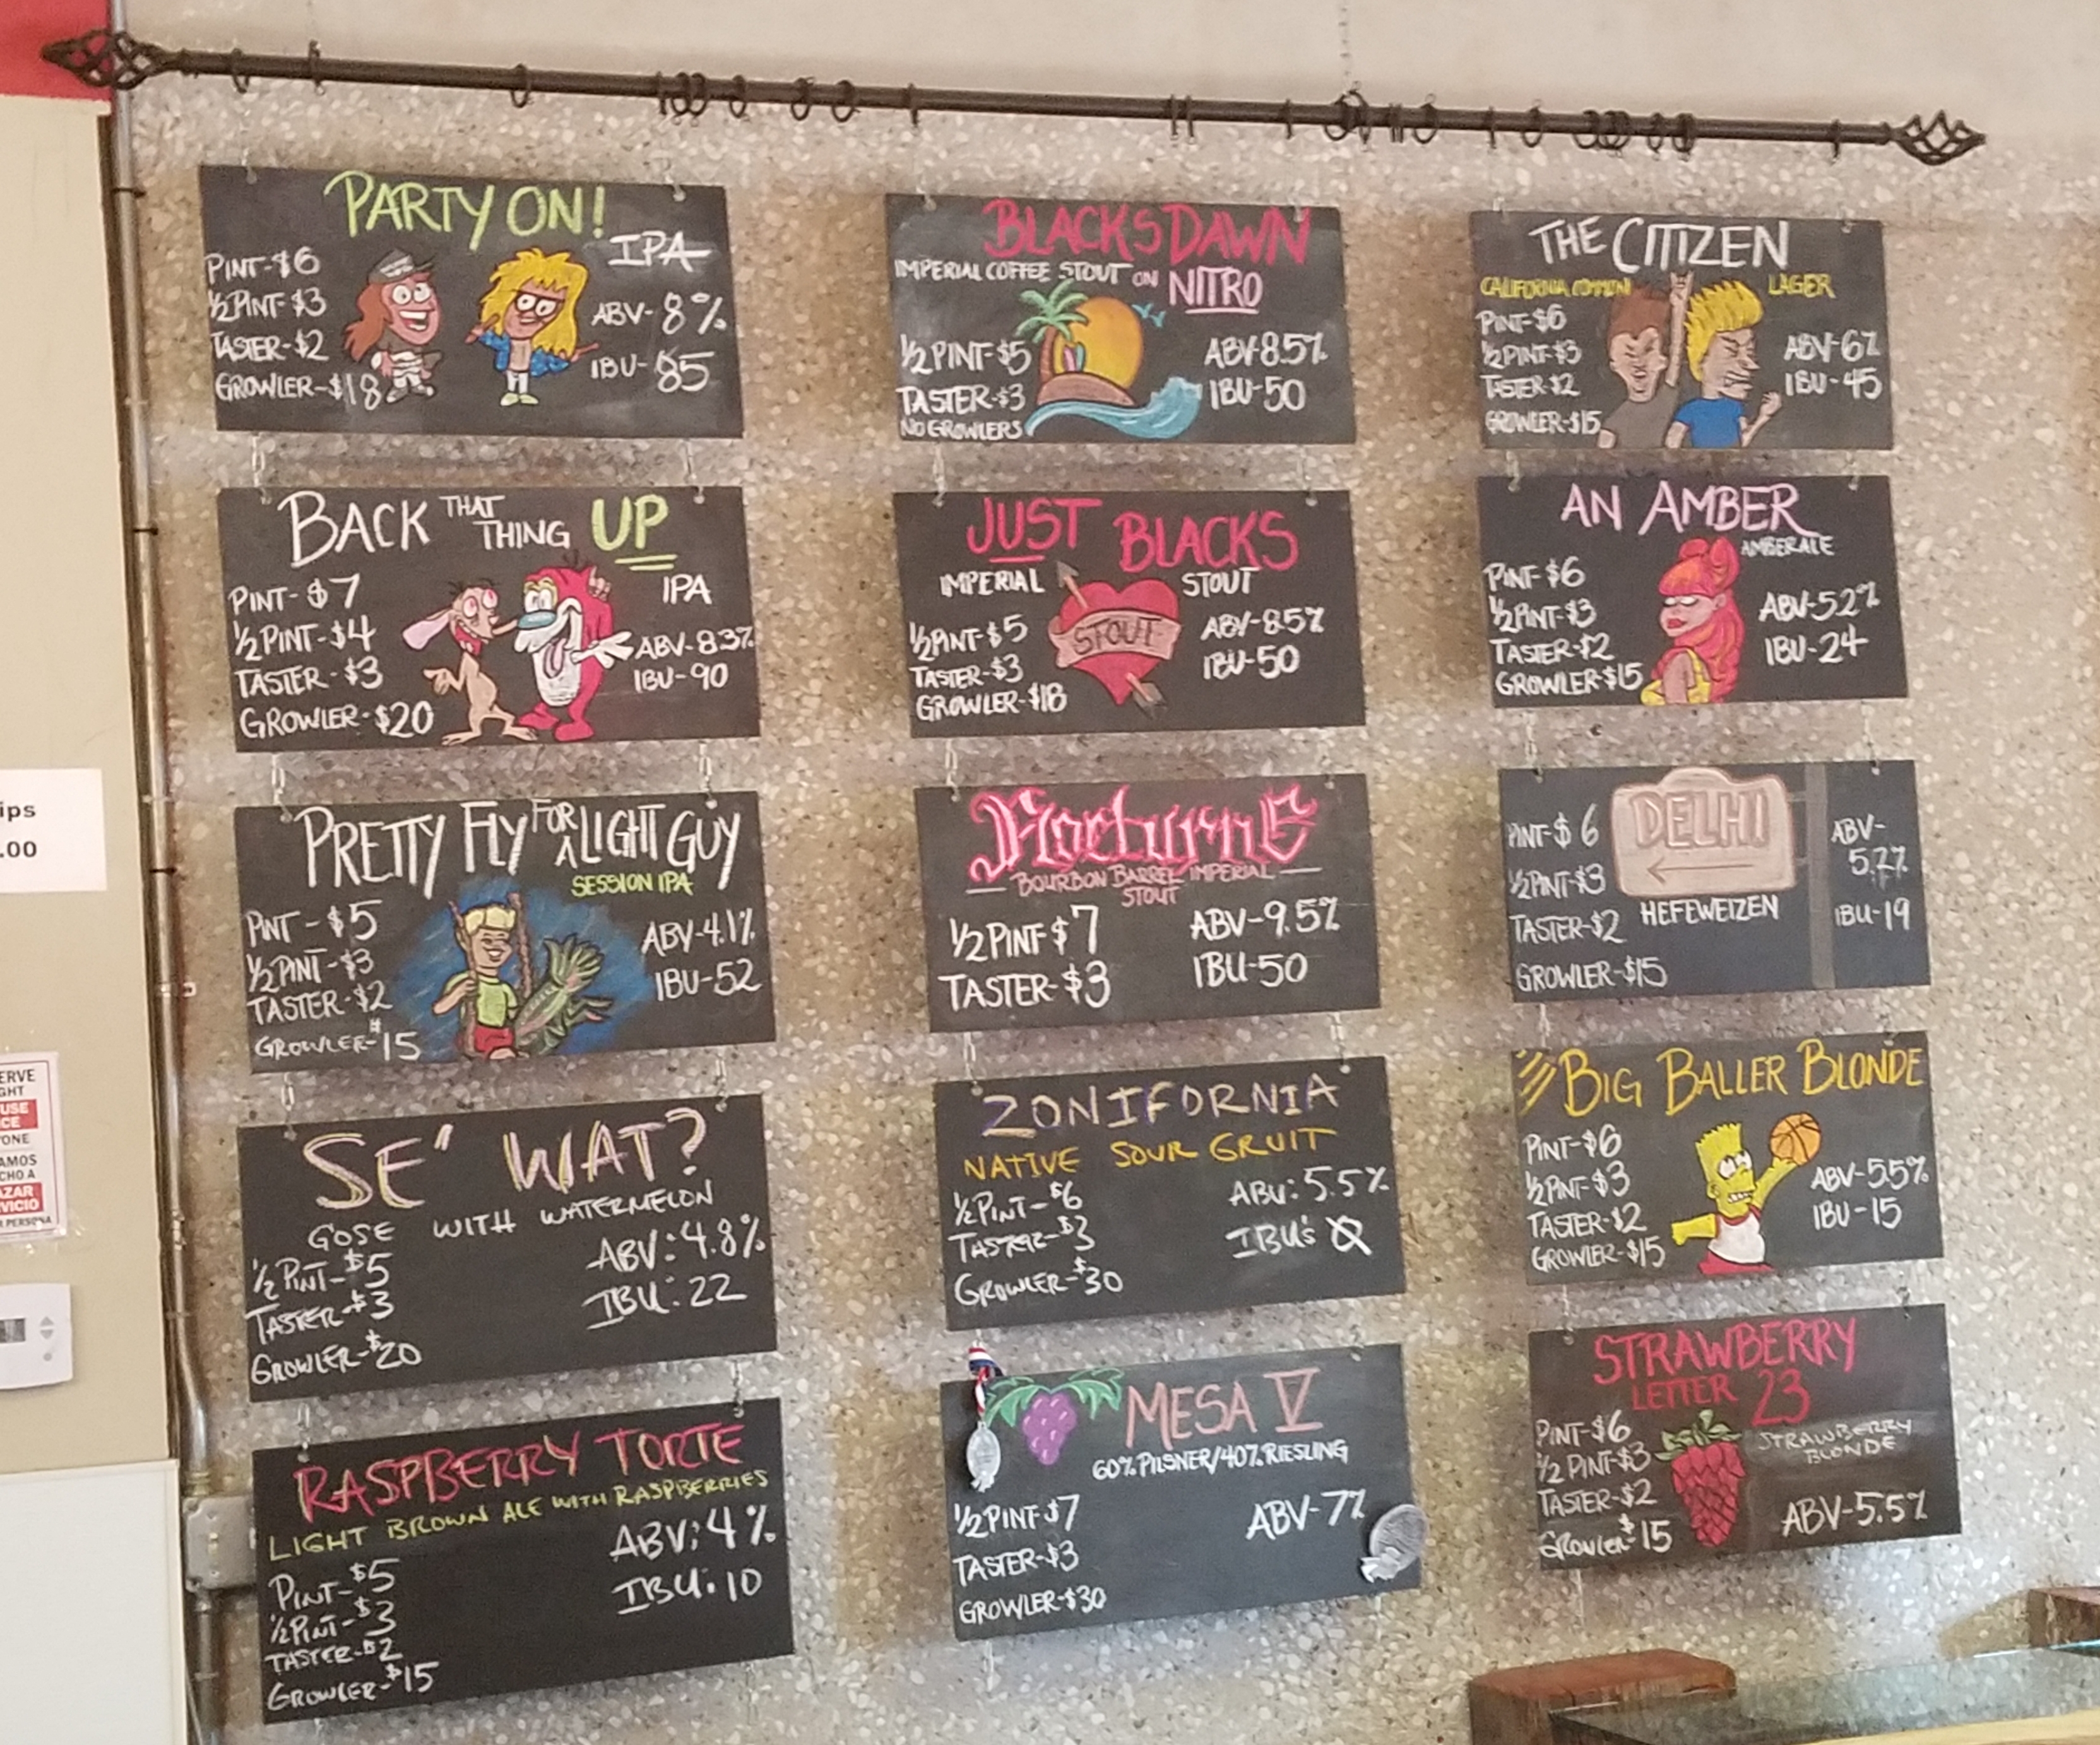 PARTY ON!
IPA
PINT-$6
½ PINT-$3
TASTER-$2
GROWLER-$18
ABV-8%
IBU-85
BACK THAT THING UP
IPA
PINT-$7
½ PINT-$4
TASTER-$3
GROWLER-$20
ABV-8.3%
IBU-90
PRETTY FLY FOR A LIGHT GUY
SESSION IPA
PINT-$5
½ PINT-$3
TASTER-$2
GROWLER-$15
ABV-4.1%
IBU-52
SE' WAT?
GOSE WITH WATERMELON
½ PINT-$5
TASTER-$3
GROWLER-$20
ABV: 4.8%
IBU: 22
RASPBERRY TORTE
LIGHT BROWN ALE WITH RASPBERRIES
PINT-$5
½ PINT-$3
TASTER-$2
GROWLER-$15
ABV: 4%
IBU: 10
BLACKS DAWN
IMPERIAL COFFEE STOUT ON NITRO
½ PINT-$5
TASTER-$3
NO GROWLERS
ABV-8.5%
IBU-50
JUST BLACKS
IMPERIAL STOUT
STOUT
½ PINT-$5
TASTER-$3
GROWLER-$18
ABV-8.5%
IBU-50
NOCTURNE
BOURBON BARREL IMPERIAL
STOUT
½ PINT-$7
TASTER-$3
ABV-9.5%
IBU-50
ZONIFORNIA
NATIVE SOUR GRUIT
½ PINT-$6
TASTER-$3
GROWLER-$30
ABV: 5.5%
IBU's Ø
MESA V
60% PILSNER/40% RIESLING
½ PINT-$7
TASTER-$3
GROWLER-$30
ABV-7%
THE CITIZEN
CALIFORNIA COMMON LAGER
PINT-$6
½ PINT-$3
TASTER-$2
GROWLER-$15
ABV-6%
IBU-45
AN AMBER
AMBER ALE
PINT-$6
½ PINT-$3
TASTER-$2
GROWLER-$15
ABV-5.2%
IBU-24
DELHI
HEFEWEIZEN
PINT-$6
½ PINT-$3
TASTER-$2
GROWLER-$15
ABV-
5.7%
IBU-19
BIG BALLER BLONDE
PINT-$6
½ PINT-$3
TASTER-$2
GROWLER-$15
ABV-5.5%
IBU-15
STRAWBERRY
LETTER 23
STRAWBERRY
BLONDE
PINT-$6
½ PINT-$3
TASTER-$2
GROWLER-$15
ABV-5.5%
ips
.00
ERVE
GHT
USE
ICE
YONE
AMOS
CHO A
AZAR
VICIO
PERSONA